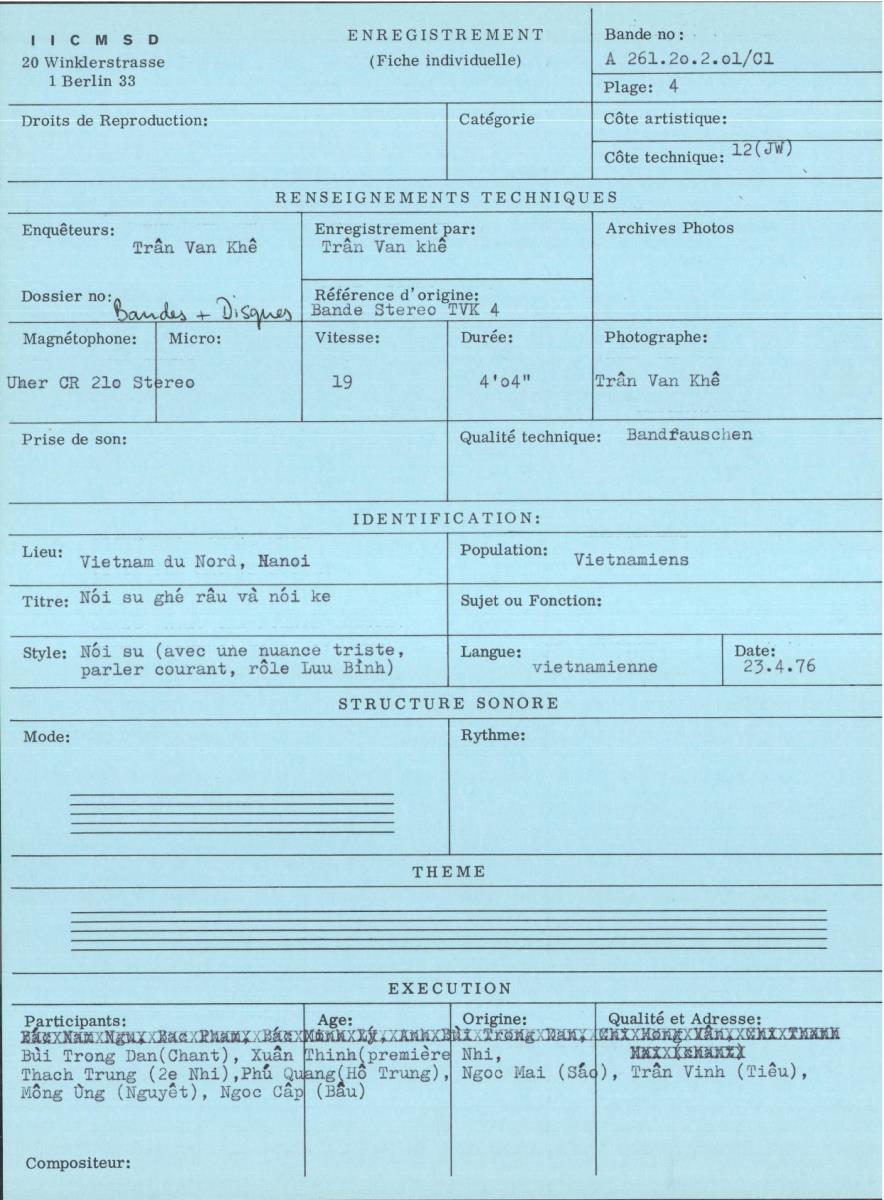 I I C M S D
20 Winklerstrasse
1 Berlin 33
ENREGISTREMENT
(Fiche individuelle)
Bande no:
A 261.2o.2.o1/C1
Plage: 4
Droits de Reproduction:
Catégorie
Côte artistique:
Côte technique: 12(JW)
RENSEIGNEMENTS TECHNIQUES
Enquêteurs:
Trân Van Khê
Enregistrement par:
Trân Van khê
Archives Photos
Dossier no: Bandes + Disques
Référence d'origine:
Bande Stereo TVK 4
Magnétophone:
Uher CR 21o Stereo
Micro:
Vitesse:
19
Durée:
4'o4"
Photographe:
Trân Van Khê
Prise de son:
Qualité technique: Bandrauschen
IDENTIFICATION:
Lieu: Vietnam du Nord, Hanoi
Population: Vietnamiens
Titre: Nói su ghé râu và nói ke
Sujet ou Fonction:
Style: Nói su (avec une nuance triste,
parler courant, rôle Luu Bình)
Langue:
vietnamienne
Date:
23.4.76
STRUCTURE SONORE
Mode:
Rythme:
THEME
EXECUTION
Participants:
Age:
Origine:
Qualité et Adresse:
Bác Nam Ngu, Bac Pham, Bác Minh Ly, Anh Bùi Trong Dan, Chi Hong Vân, Chi Thanh
Bùi Trong Dan(Chant), Xuân Thinh(première Nhi,
(chant)
Thach Trung (2e Nhi),Phú Quang(Hô Trung), Ngoc Mai (Sáo), Trân Vinh (Tiêu),
Mông Ùng (Nguyêt), Ngoc Câp (Bâu)
Compositeur: